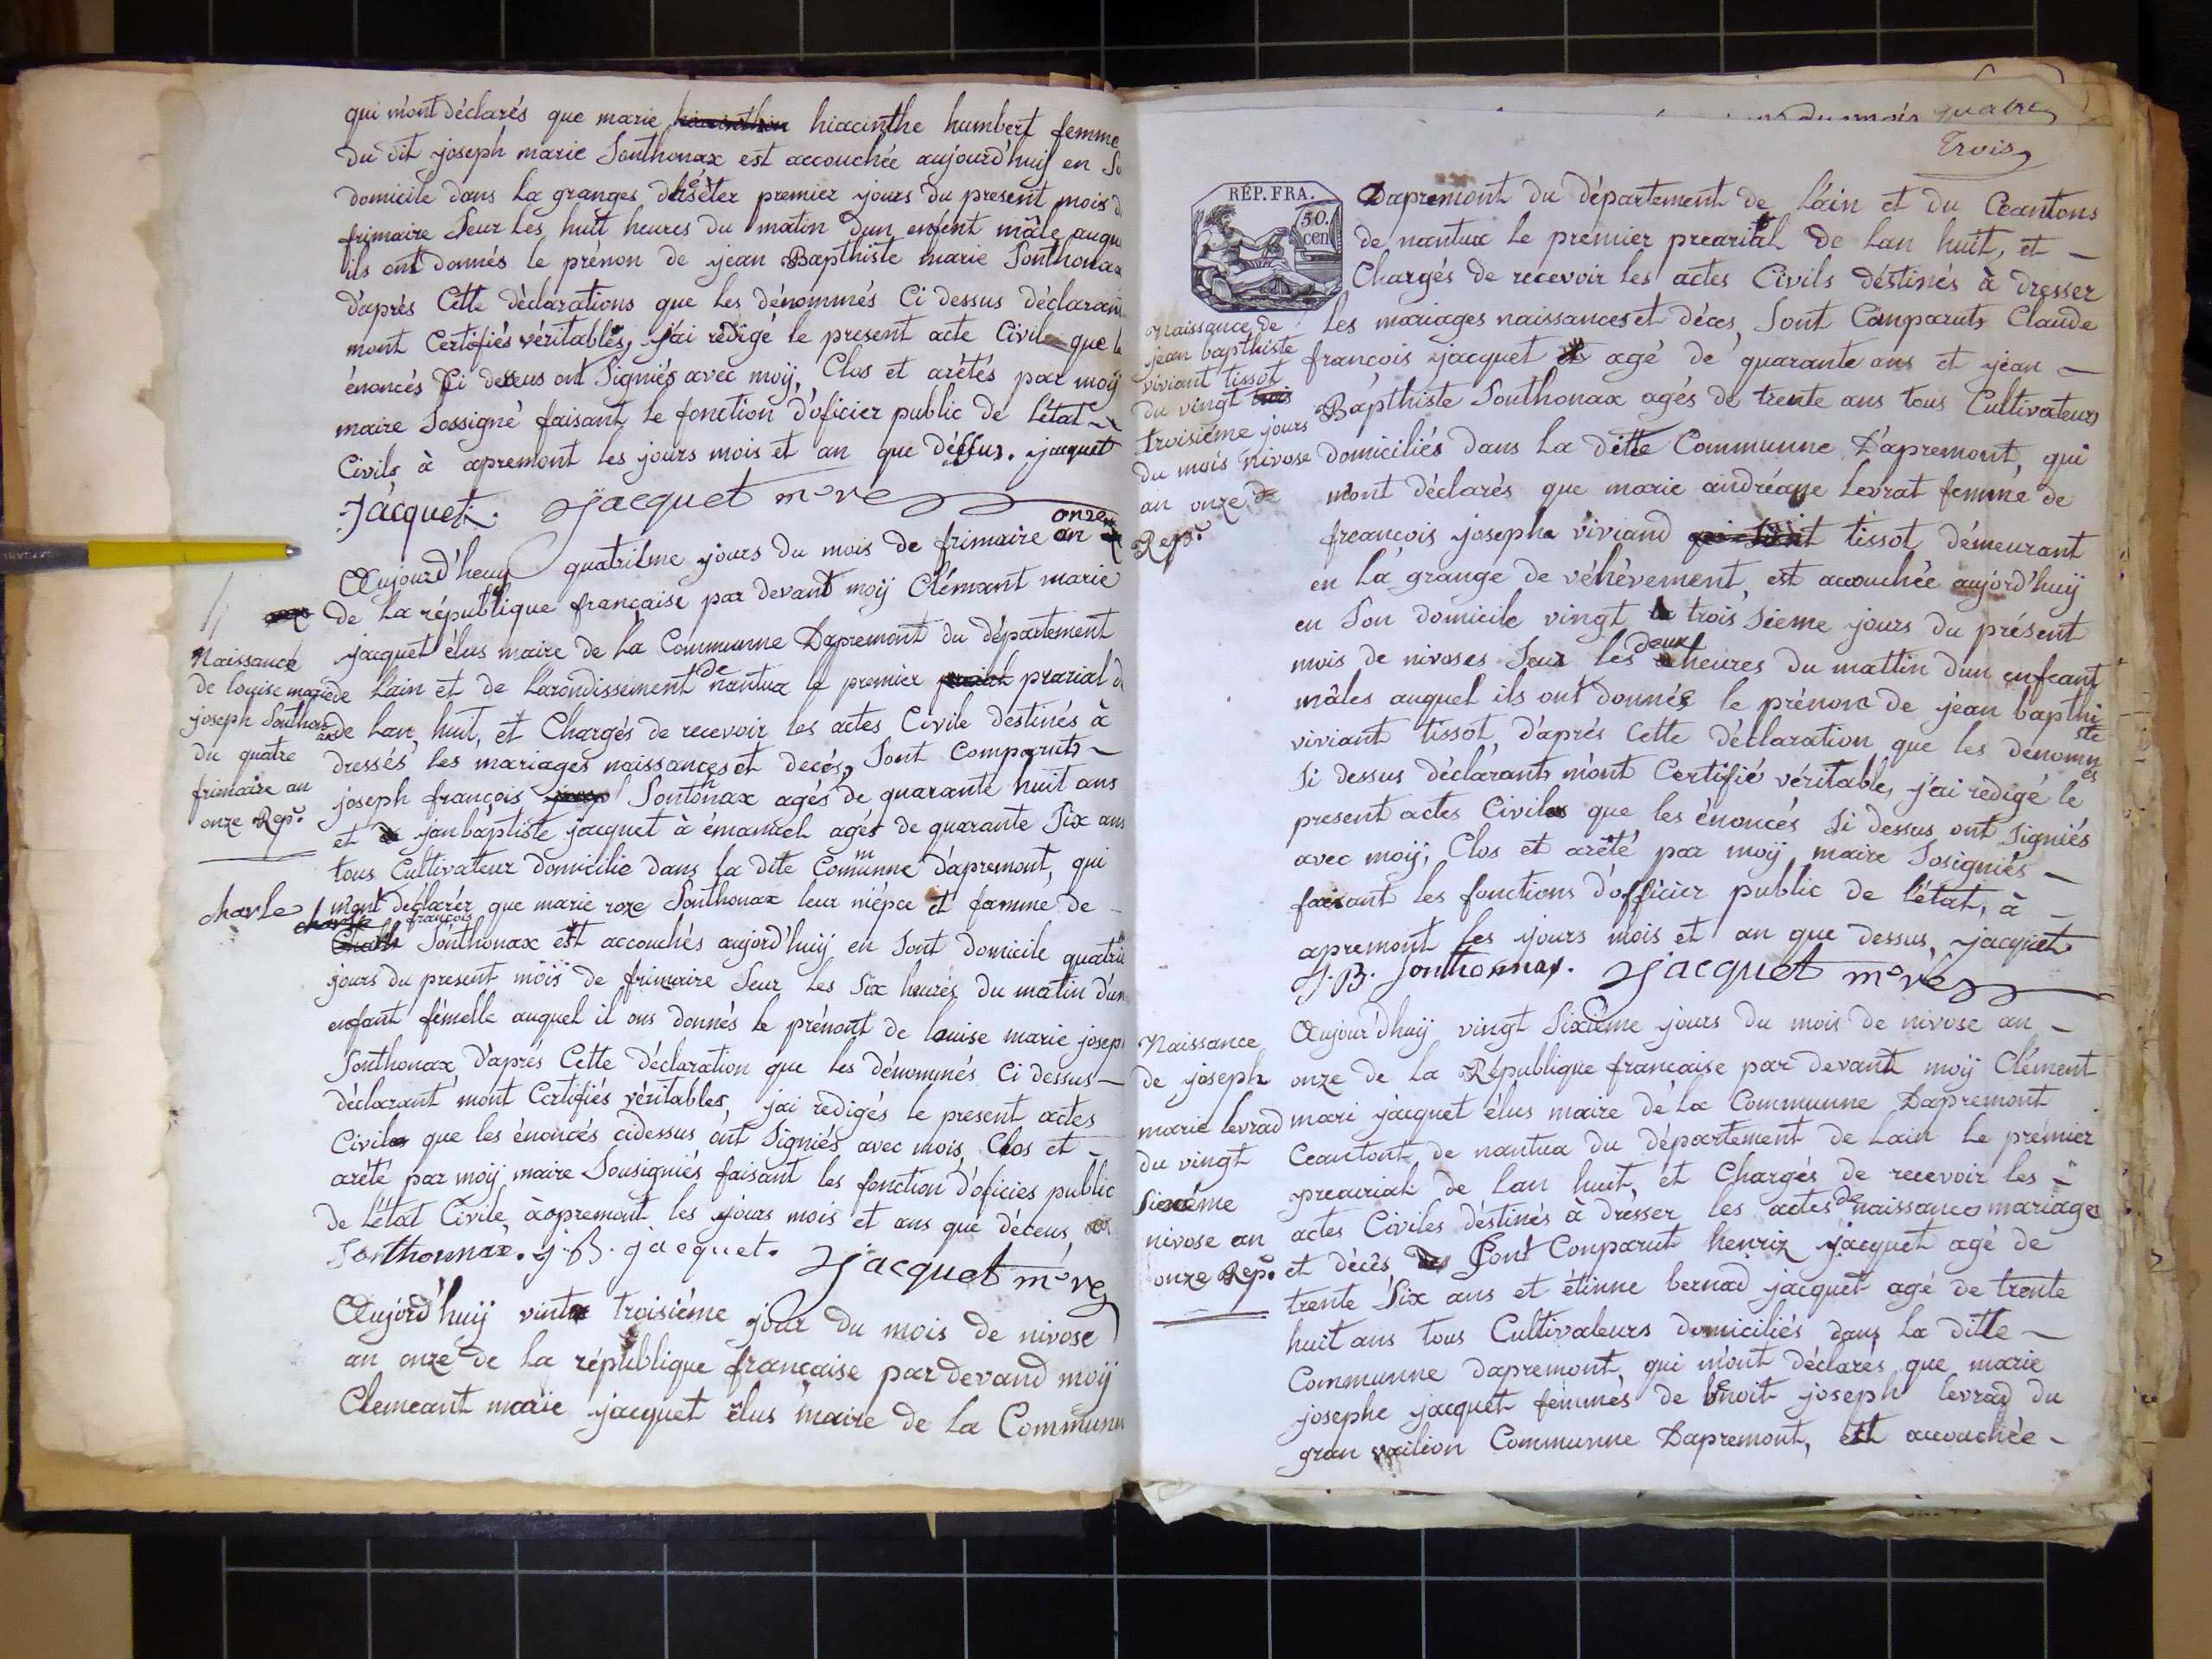 qui m'ont déclarés que marie hiacinthe humbert femme
du dit joseph marie Sonthonax est accouchée aujourd'huij en So
domicile dans la granges premier jours du present mois d
frimaire Seur Les huit heures du matin dun enfent mâle auqu
ils ont donnés le prénon de jean Bapthiste marie Sonthonax
d'aprés Cette déclarations que les dénommés Ci dessus déclaran
mont Certifiés véritables, j'ai redigé le present acte Civile que le
énoncés Ci dessus ont Signiés avec moij, Clos et arêtés par moij
maire Sossigné faisant le fonction d'oficier public de l'état
Civils à apremont les jours mois et an que déssus. jacquet
Jacquet. jacquet mre
onze
Aujourd'heuy quatriéme jours du mois de frimaire an
de La république française par devant moij Clémant marie
jacquet élus maire de la Communne Dapremont du département
de
de Lain et de Larondissement nantua le premier prarial d
de Lan huit, et Chargés de recevoir les actes Civile destinés à
dressés les mariages naissances et decés, Sont Comparuts
joseph françois Sontonax agés de quarante huit ans
et janbaptiste jacquet à émanuel agés de quarante Six ans
tous Cultivateur domicilié dans la dite Comunne d'apremont, qui
mont déclarér que marie roze Sonthonax leur niépce et famme de
françois
Sonthonax est accouchés aujord'huij en Sont domicile quatrié
jours du present mois de frimaire Seur les Six heurés du matin d'un
enfant fémelle auquel il ons donnés le prénont de louise marie josep
Sonthonax d'aprés Cette déclaration que les dénommés Ci dessus
déclarant mont Certifiés véritables, jai redigés le present actes
Civile que les énoncés cidessus ont Signiés avec mois, Clos et
arêté par moij maire Sousigniés faisant les fonction d'oficies public
de L'état Civile, à apremont les jours mois et ans que décens
Sonthonnax. j. B. jacquet. jacquet mre
Aujord'huij vint troisiéme jour du mois de nivose
an onze de La république française par devand moij
Clemeant marie jacquet êlus maire de la Commun
Naissance
de louise marie
joseph Sonthonax
du quatre
frimaire an
onze Rep.
charle
quatre
Trois
RÉP. FRA.
50.
cen
Dapremont du département de Láin et du Ceantons
de nantua Le premier de Lan huit, et
Chargés de recevoir les actes Civils déstinés à dresser
Les mariages naissances et déces, Sont Comparuts Claude
françois jacquet agé de quarante ans et jean
Bapthiste Sonthonax agés de trente ans tous Cultivateurs
domiciliés dans La ditte Communne D'apremont, qui
m'ont déclarés que marie andréane Levrat femme de
françois josephe viviand tissot démeurant
en La grange de véhévement, est accouchée aujord'huij
en Son domicile vingt trois Sieme jours du présent
deux
mois de nivoses Seur les heures du mattin dun enfeant
mâles auquel ils ont donnés le prénom de jéan bapthi
ste
viviant tissot, d'aprés Cette déclaration que les dénomm
és
Si dessus déclarants m'ont Certifié véritable, j'ai redigé le
present actes Civiles que les énoncés Si dessus ont Signiés
avec moij, Clos et arêté par moij maire Sosigniés
faisant les fonctions d'officier public de L'état, à
apremont les jours mois et an que dessus, jacquet
J. B. Sonthonnax. jacquet mre
Naissance de
jean bapthiste
viviant tissot
du vingt
troisiéme jours
du mois nivose
an onze de
Rep.
Aujour'dhuij vingt Sixiéme jours du mois de nivose an
onze de La République francaise par devant moij Clément
mari jacquet élus maire de la Communne Dapremont
Ceantont de nantua du département de Lain Le prémier
de Lan huit, et Chargés de recevoir les
de
actes Civiles déstinés à dresser les actes naissances mariages
et décês Sont Conparut henriz jacquet agé de
trente Six ans et étinne bernad jacquet agé de trente
huit ans tous Cultivateurs domiciliés dans La ditte
Communne dapremont, qui m'ont déclarés que marie
josephe jacquet femmes de benoit joseph levrad du
gran vallion Communne Dapremont, est accouchée
Naissance
de joseph
marie levrad
du vingt
Siexéme
nivose an
onze Rep.